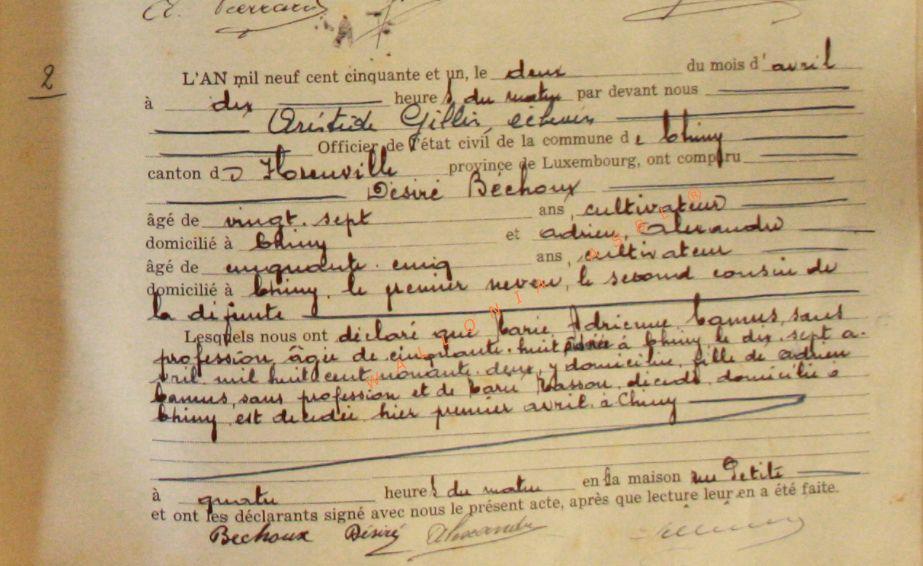 2
L'AN mil neuf cent cinquante et un, le deux du mois d'avril
à dix heures du matin par devant nous
Aristide Gillis, échevin
Officier de l'état civil de la commune de Chiny
canton de Florenville province de Luxembourg, ont comparu
Désiré Bechoux
âgé de vingt-sept ans, cultivateur
domicilié à Chiny et Adrien, Alexandre
âgé de cinquante-cinq ans, cultivateur
domicilié à Chiny, le premier neveu, le second cousin de
la défunte
Lesquels nous ont déclaré que Marie Adrienne Camus, sans
profession, âgée de cinquante-huit née à Chiny, le dix-sept a-
vril mil huit cent nonante-deux, y domiciliée, fille de Adrien
Camus, sans profession et de Marie Masson, décédée, domicilié à
Chiny est décédée hier premier avril à Chiny
à quatre heures du matin en la maison rue Petite
et ont les déclarants signé avec nous le présent acte, après que lecture leur en a été faite.
Bechoux Désiré Alexandre
WALLONIA ASBL ®